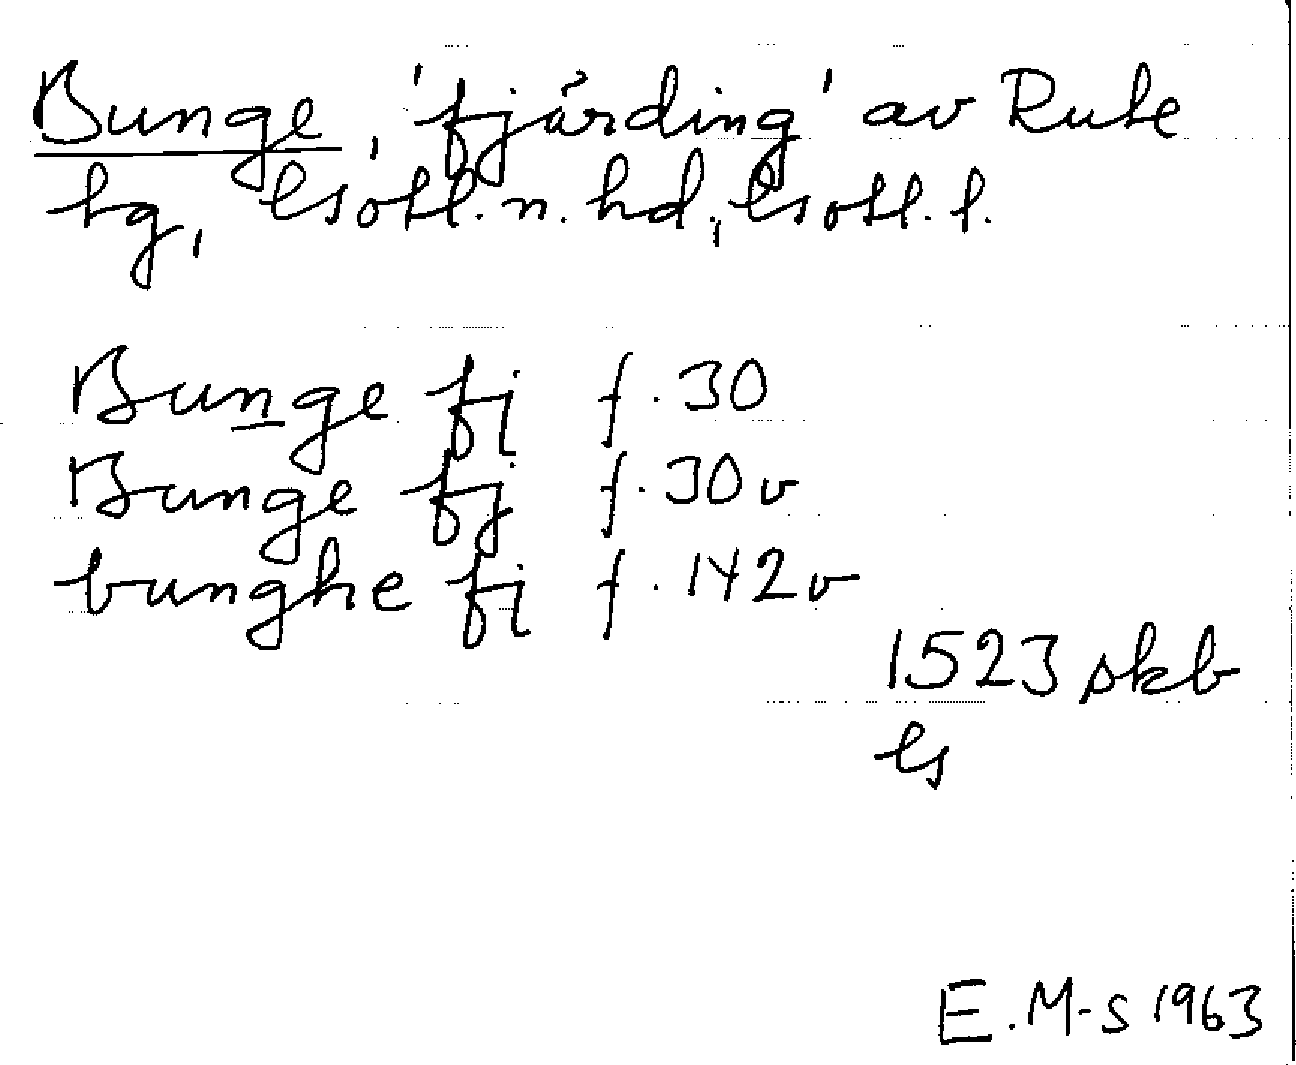 Bunge, 'fjärding' av Rute
tg, Gotl. n. hd, Gotl. l.
Bunge fj f. 30
Bunge fj f. 30 v
bunghe fj f. 142 v
1523 skb
G
E. M-s 1963